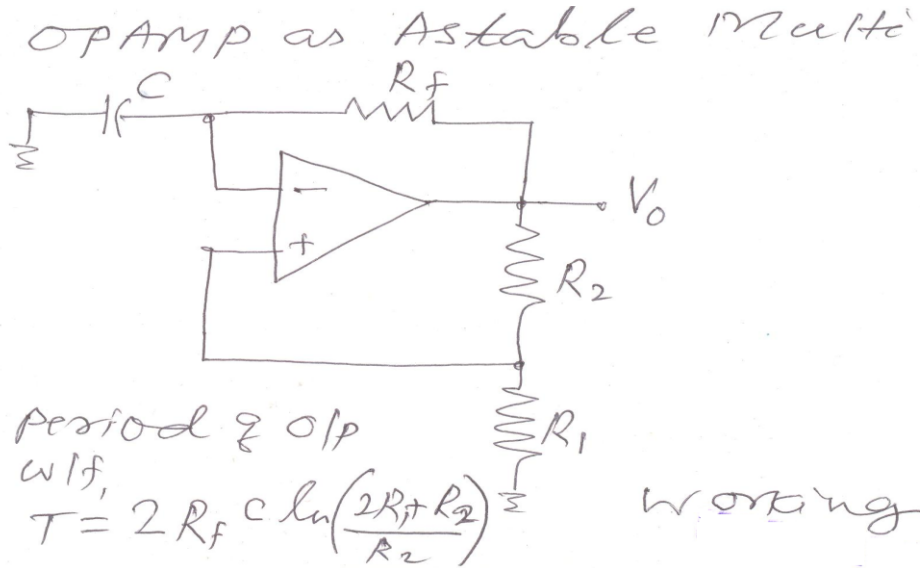 OPAMP as Astable Multi
C
Rf
−
+
V₀
R₂
R₁
period & o/p
w/f,
T = 2 Rf C ln((2R₁+R₂)/R₂)
working